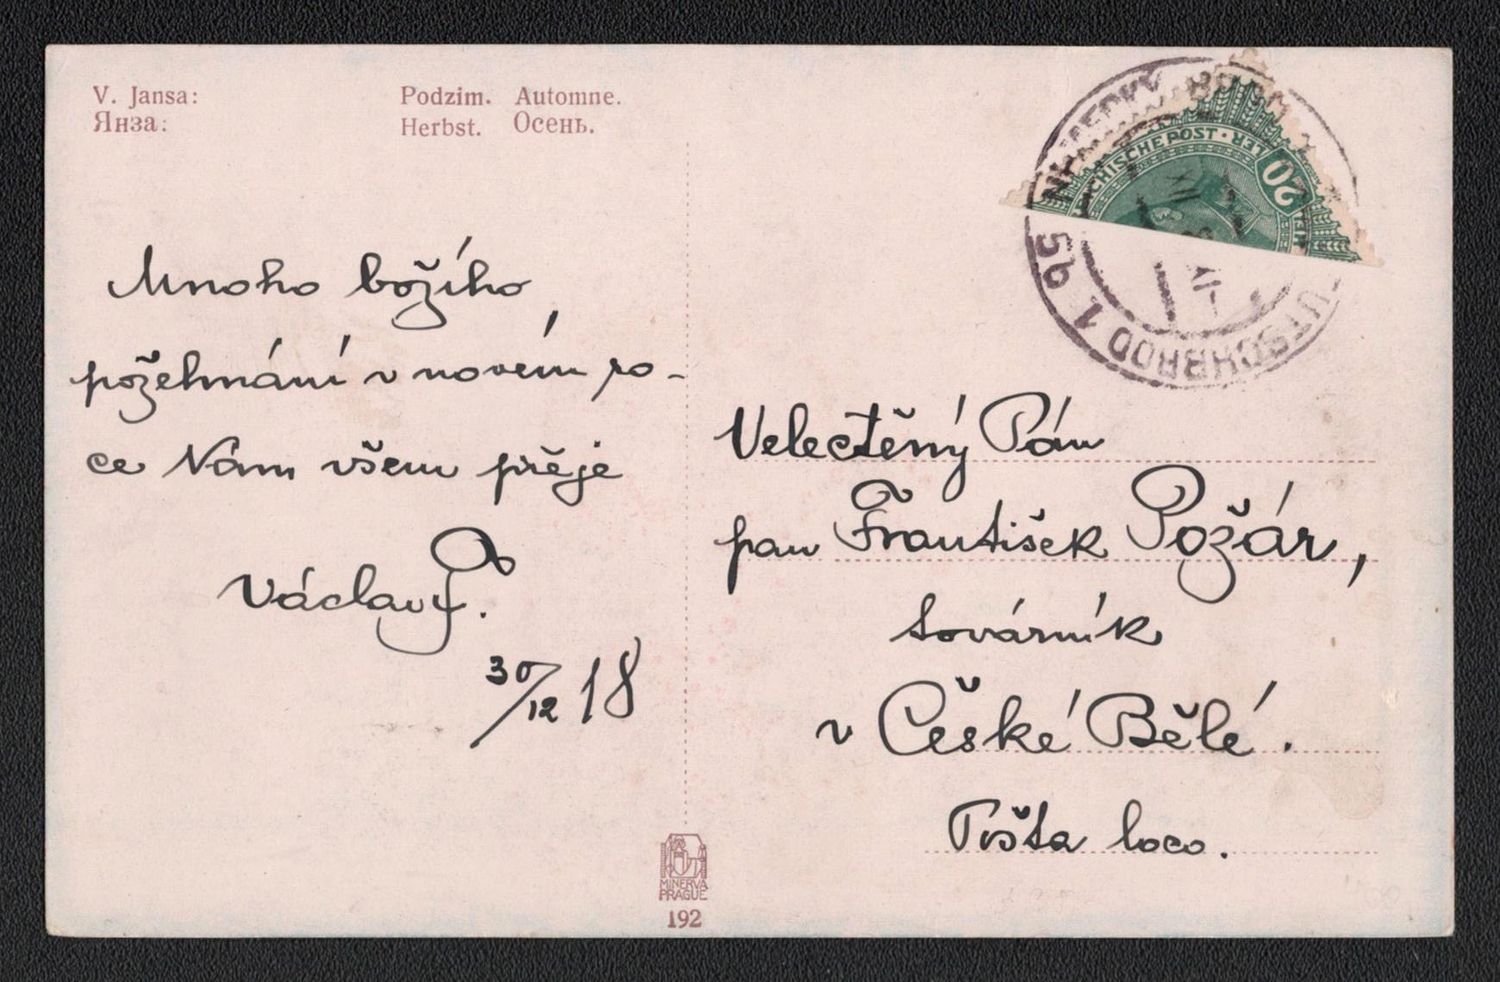 V. Jansa: Podzim. Automne.
Янза: Herbst. Осень.
Mnoho božího
požehnání v novém ro-
ce Vám všem přeje
Václav P.
30/12 18
MINERVA
PRAGUE
192
NĚMECKÝ BROD 1
UTSCHBROD 1 5b
XII
CHISCHE POST
20
Velectěný Pán
pan František Požár,
továrník
v České Bělé.
Pošta loco.